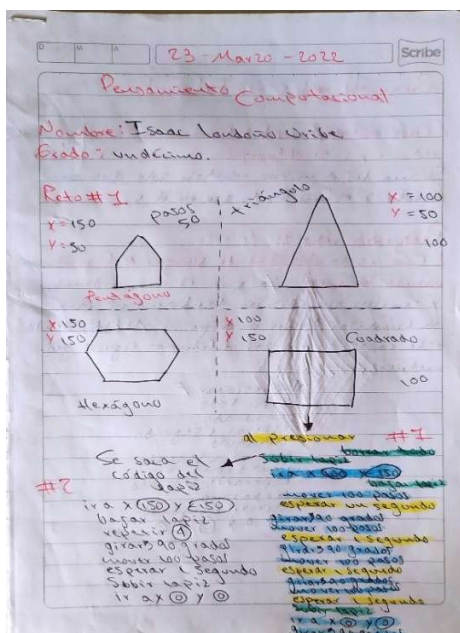 D M A 23-Marzo-2022 Scribe
Pensamiento Computacional
Nombre: Isaac Londoño Uribe
Grado: undécimo.
Reto #1
x = 150
y = 50
pasos
50
Pentágono
triángulo
x = 100
y = 50
100
x 150
y 150
Hexágono
x 100
y 150
Cuadrado
100
Se saca el
código del
lapiz
#2
ir a x 150 y
bajar lapiz
repetir 4
girar 90 grados
mover 100 pasos
esperar 1 segundo
Subir lapiz
ir a x 0 y 0
al presionar #1
borrar todo
subir lapiz
ir a x 150
bajar lapiz
mover 100 pasos
esperar un segundo
girar 90 grados
mover 100 pasos
esperar 1 segundo
girar 90 grados
mover 100 pasos
esperar 1 segundo
girar 90 grados
mover 100 pasos
esperar 1 segundo
subir lapiz
ir a x 0 y 0